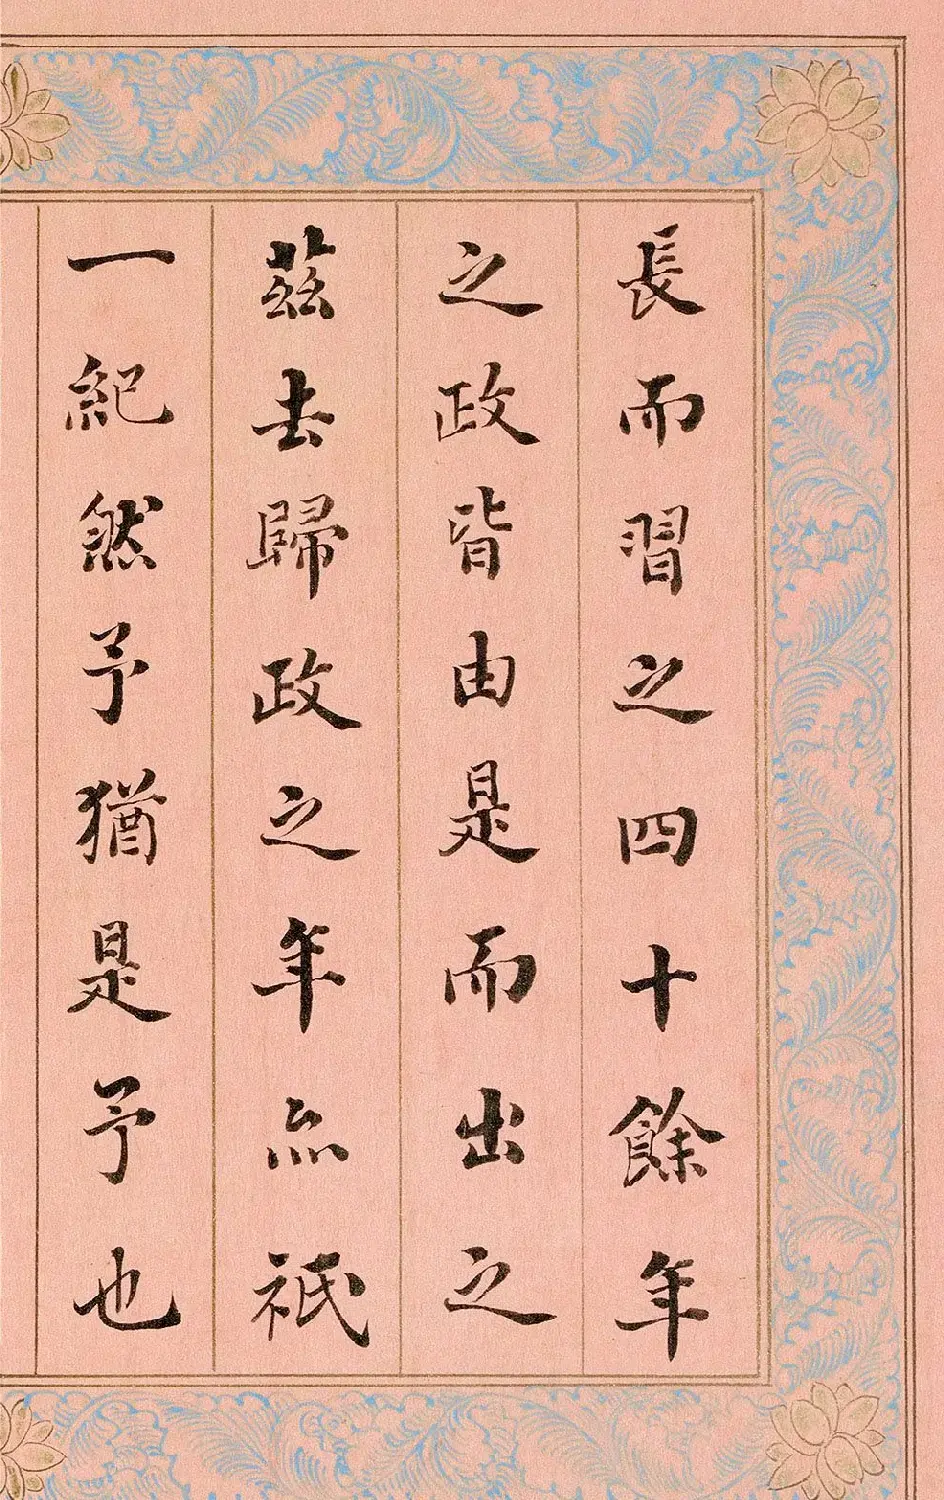 長而習之四十餘年
之政皆由是而出之
茲去歸政之年亦祇
一紀然予猶是予也